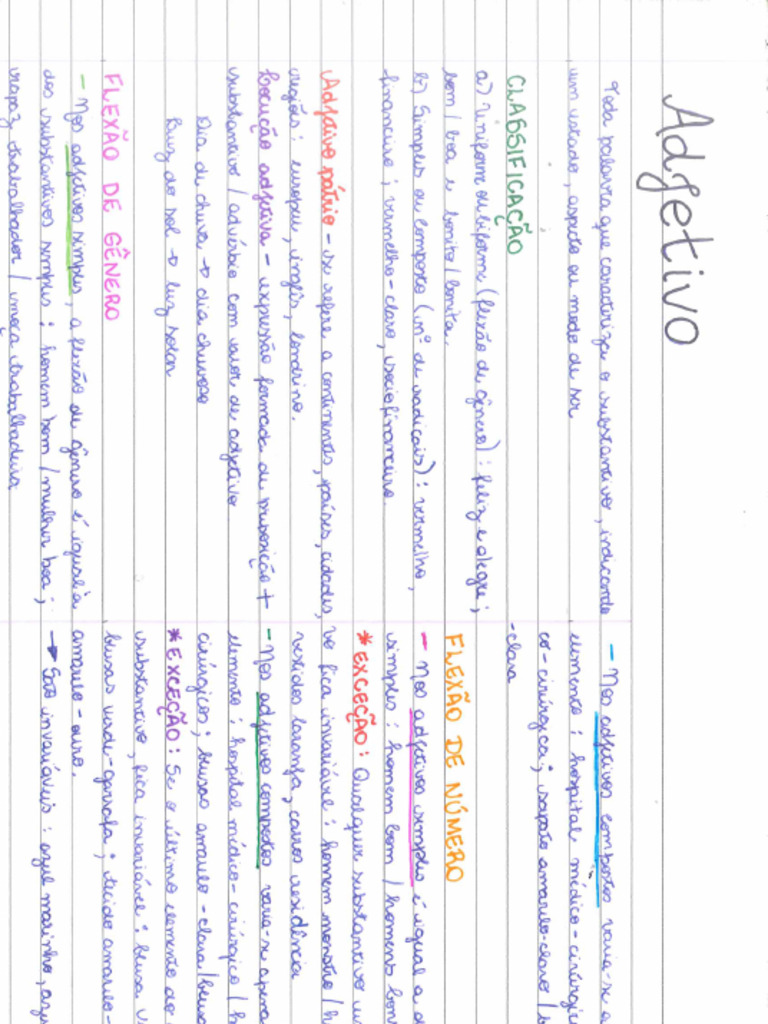 Adjetivo
Toda palavra que caracteriza o substantivo, indicando
um estado, aspecto ou modo de ser
CLASSIFICAÇÃO
a) Uniforme ou biforme (flexão de gênero): feliz e alegre;
bom/boa e bonito/bonita.
b) Simples ou composto (nº de radicais): vermelho,
financeiro; vermelho-claro, sociofinanceiro.
Adjetivo pátrio - se refere a continentes, países, cidades,
regiões: europeu, inglês, londrino.
Locução adjetiva - expressão formada de preposição +
substantivo/advérbio com valor de adjetivo
Dia de chuva → dia chuvoso
Luz do sol → luz solar
FLEXÃO DE GÊNERO
- Nos adjetivos simples, a flexão de gênero é igual à
dos substantivos simples: homem bom/mulher boa;
rapaz trabalhador/moça trabalhadeira
- Nos adjetivos compostos varia-se a
elemento: hospital médico-cirúrgi
co-cirúrgica; sapato amarelo-claro/
-clara
FLEXÃO DE NÚMERO
- Nos adjetivos simples é igual a d
simples: homem bom/homens bon
* EXCEÇÃO: Qualquer substantivo u
vo fica invariável: homem monstro/h
vestidos laranja, carros residência
- Nos adjetivos compostos varia-se apena
elemento: hospital médico-cirúrgico/h
cirúrgicos; blusas amarelo-clara/blus
* EXCEÇÃO: Se o último elemento do
substantivo, fica invariável: blusa v
blusas verde-garrafa; tecido amarelo-
amarelo-ouro.
→ São invariáveis: azul marinho, azu